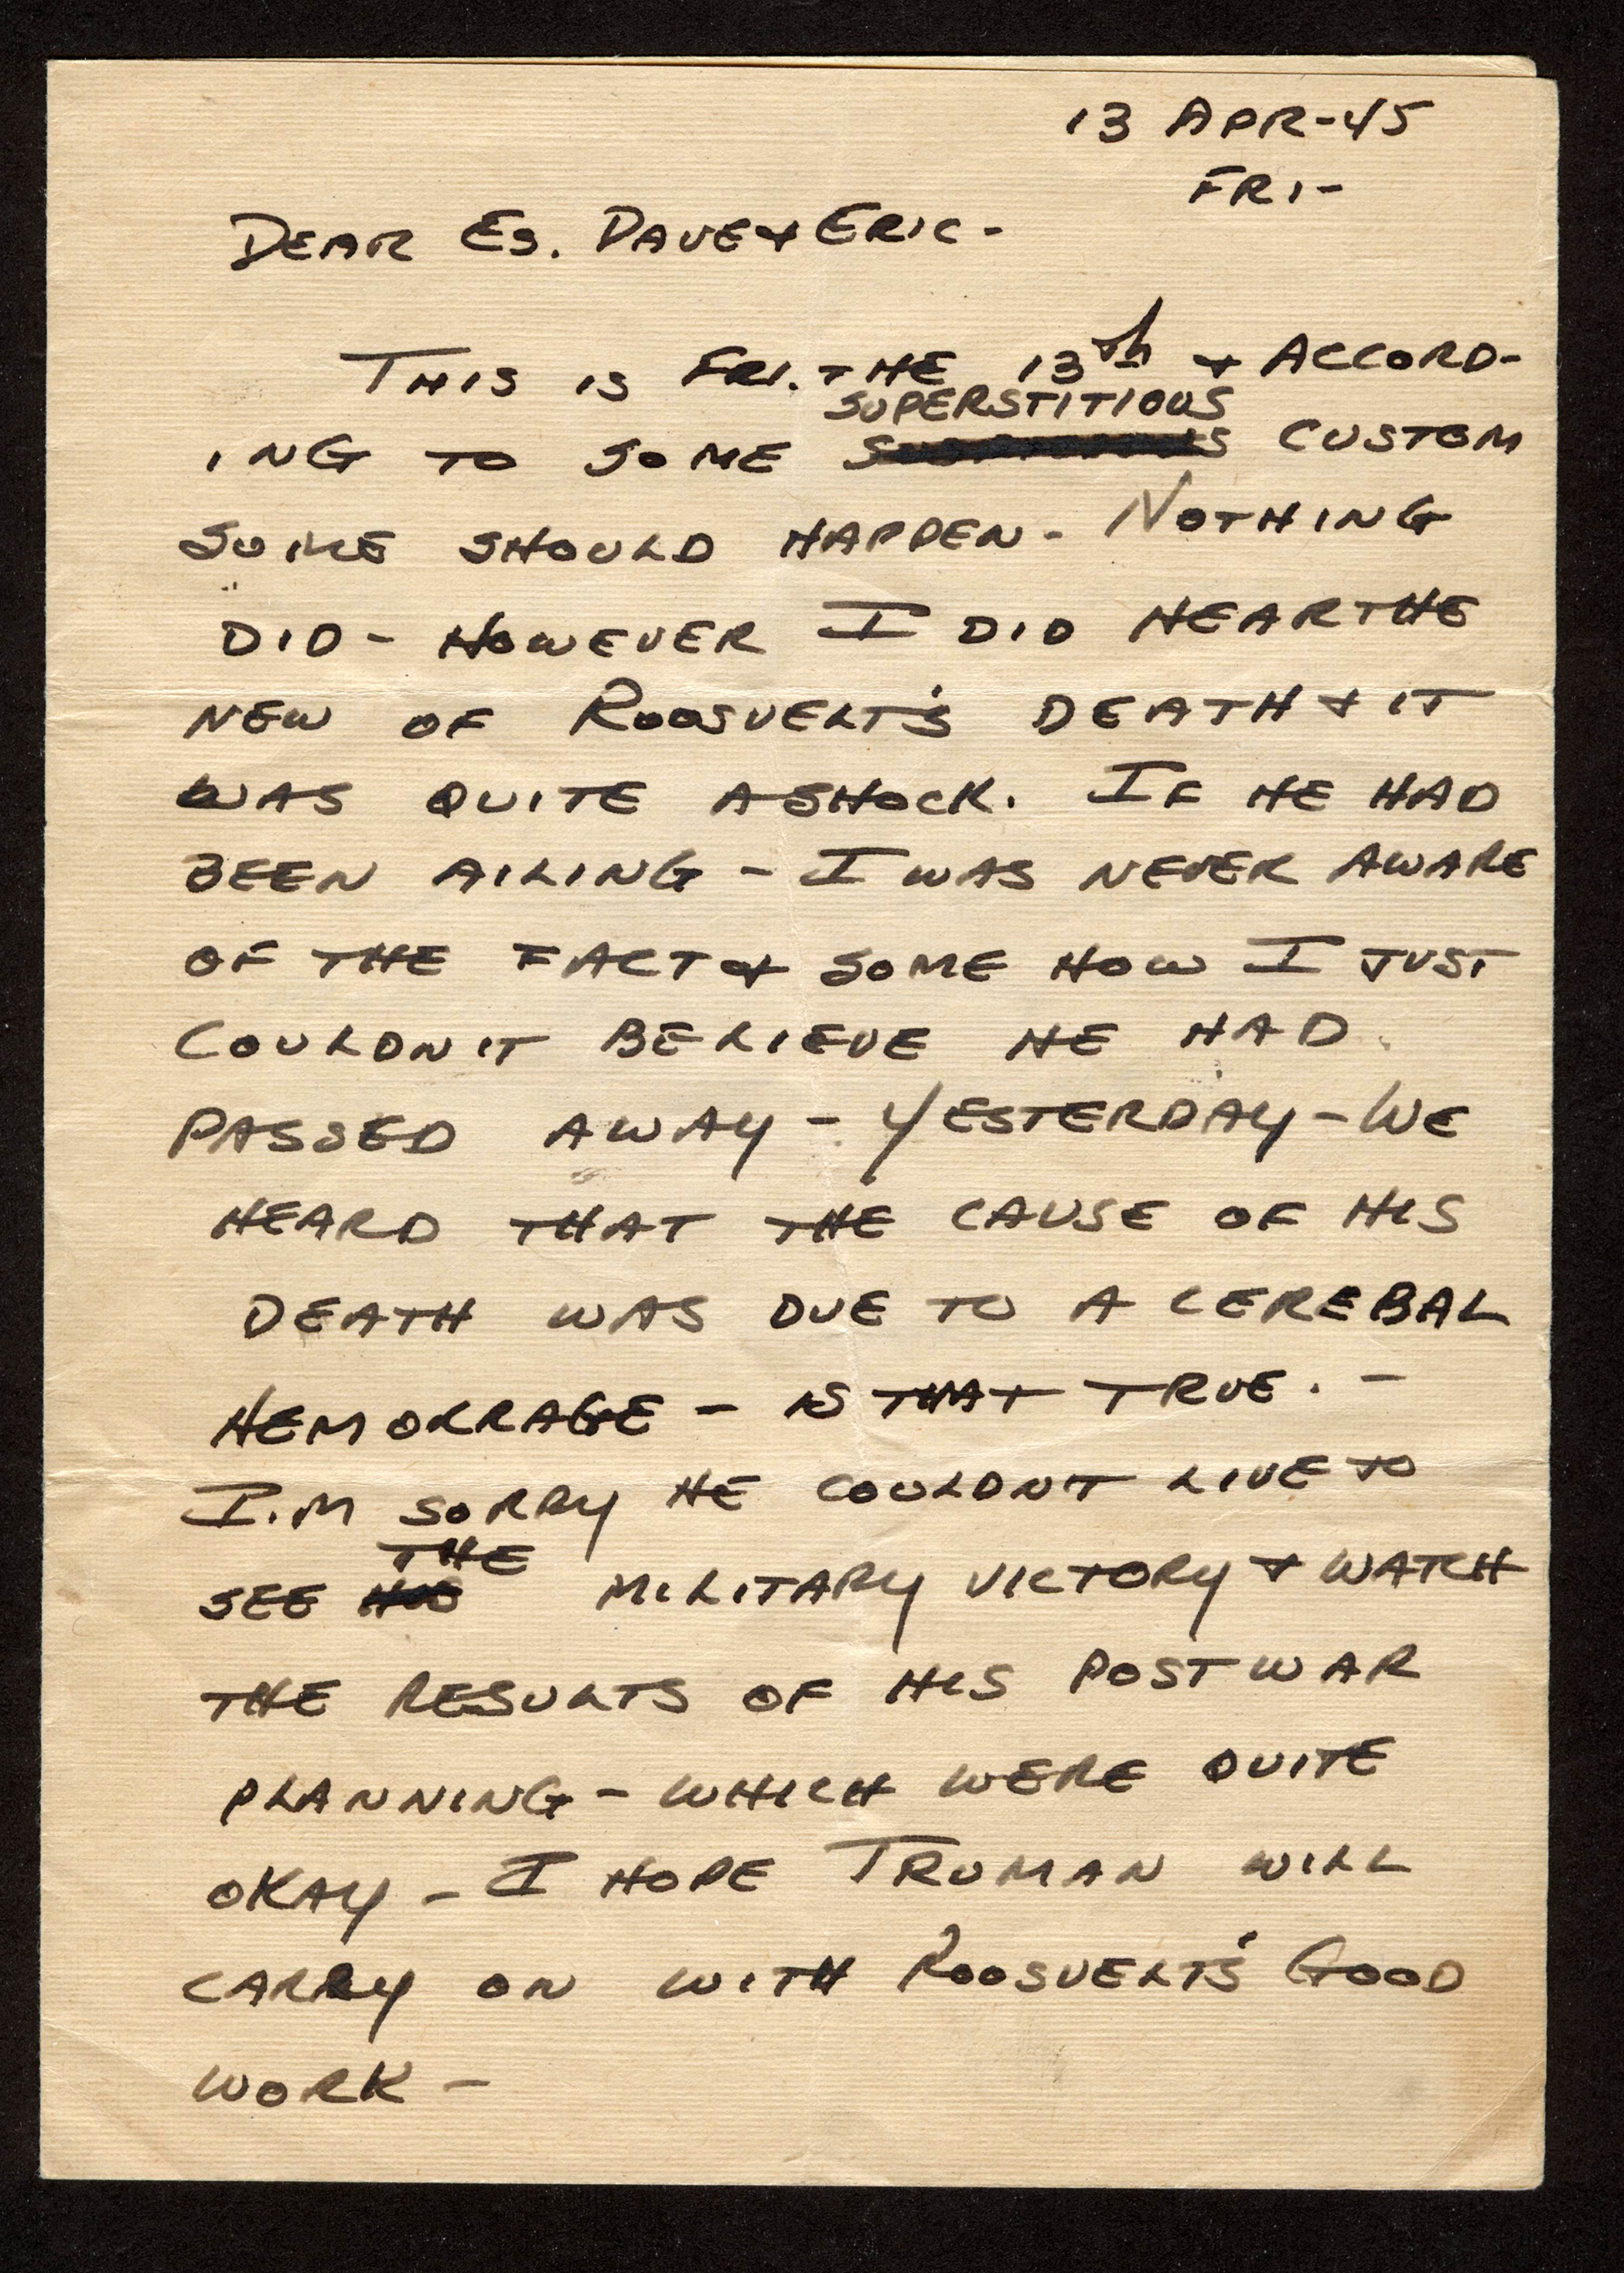 13 APR-45
FRI-
DEAR ES. DAVE & ERIC-
THIS IS FRI. THE 13th & ACCORD-
SUPERSTITIOUS
ING TO SOME CUSTOM
SOME SHOULD HAPPEN- NOTHING
DID- HOWEVER I DID HEAR THE
NEW OF ROOSVELT'S DEATH & IT
WAS QUITE A SHOCK. IF HE HAD
BEEN AILING - I WAS NEVER AWARE
OF THE FACT & SOME HOW I JUST
COULDN'T BELIEVE HE HAD
PASSED AWAY - YESTERDAY - WE
HEARD THAT THE CAUSE OF HIS
DEATH WAS DUE TO A CEREBAL
HEMORRAGE - IS THAT TRUE. -
I.M SORRY HE COULDNT LIVE TO
THE
SEE HIS MILITARY VICTORY & WATCH
THE RESULTS OF HIS POST WAR
PLANNING - WHICH WERE QUITE
OKAY - I HOPE TRUMAN WILL
CARRY ON WITH ROOSVELT'S GOOD
WORK -